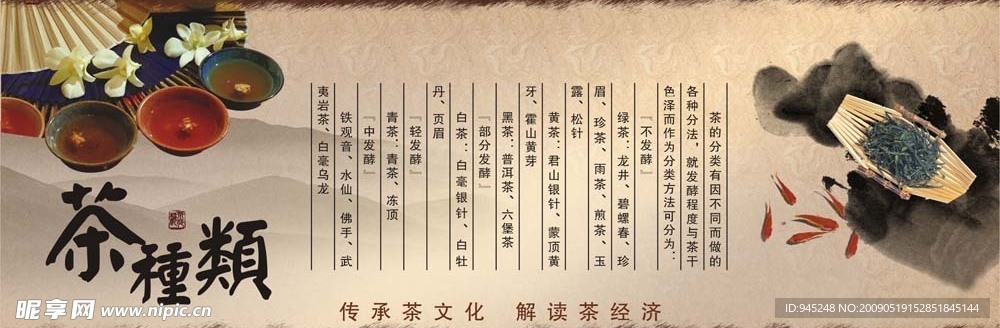 茶種類
茶的分类有因不同而做的
各种分法，就发酵程度与茶干
色泽而作为分类方法可分为：
『不发酵』
绿茶：龙井、碧螺春、珍
眉、珍茶、雨茶、煎茶、玉
露、松针
黄茶：君山银针、蒙顶黄
牙、霍山黄芽
黑茶：普洱茶、六堡茶
『部分发酵』
白茶：白毫银针、白牡
丹、页眉
『轻发酵』
青茶：青茶、冻顶
『中发酵』
铁观音、水仙、佛手、武
夷岩茶、白毫乌龙
传承茶文化 解读茶经济
昵享网 www.nipic.cn
ID:945248 NO:20090519152851845144